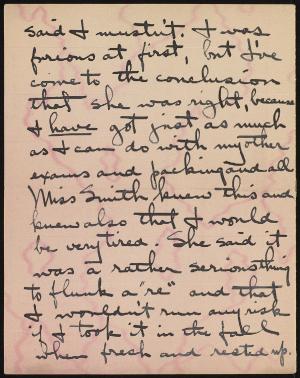 said I mustn't. I was
furious at first, but I've
come to the conclusion
that she was right, because
I have got just as much
as I can do with my other
exams and packing and all
Miss Smith knew this and
knew also that I would
be very tired. She said it
was a rather serious thing
to flunk a "re" and that
I wouldn't run any risk
if I took it in the fall
when fresh and rested up.